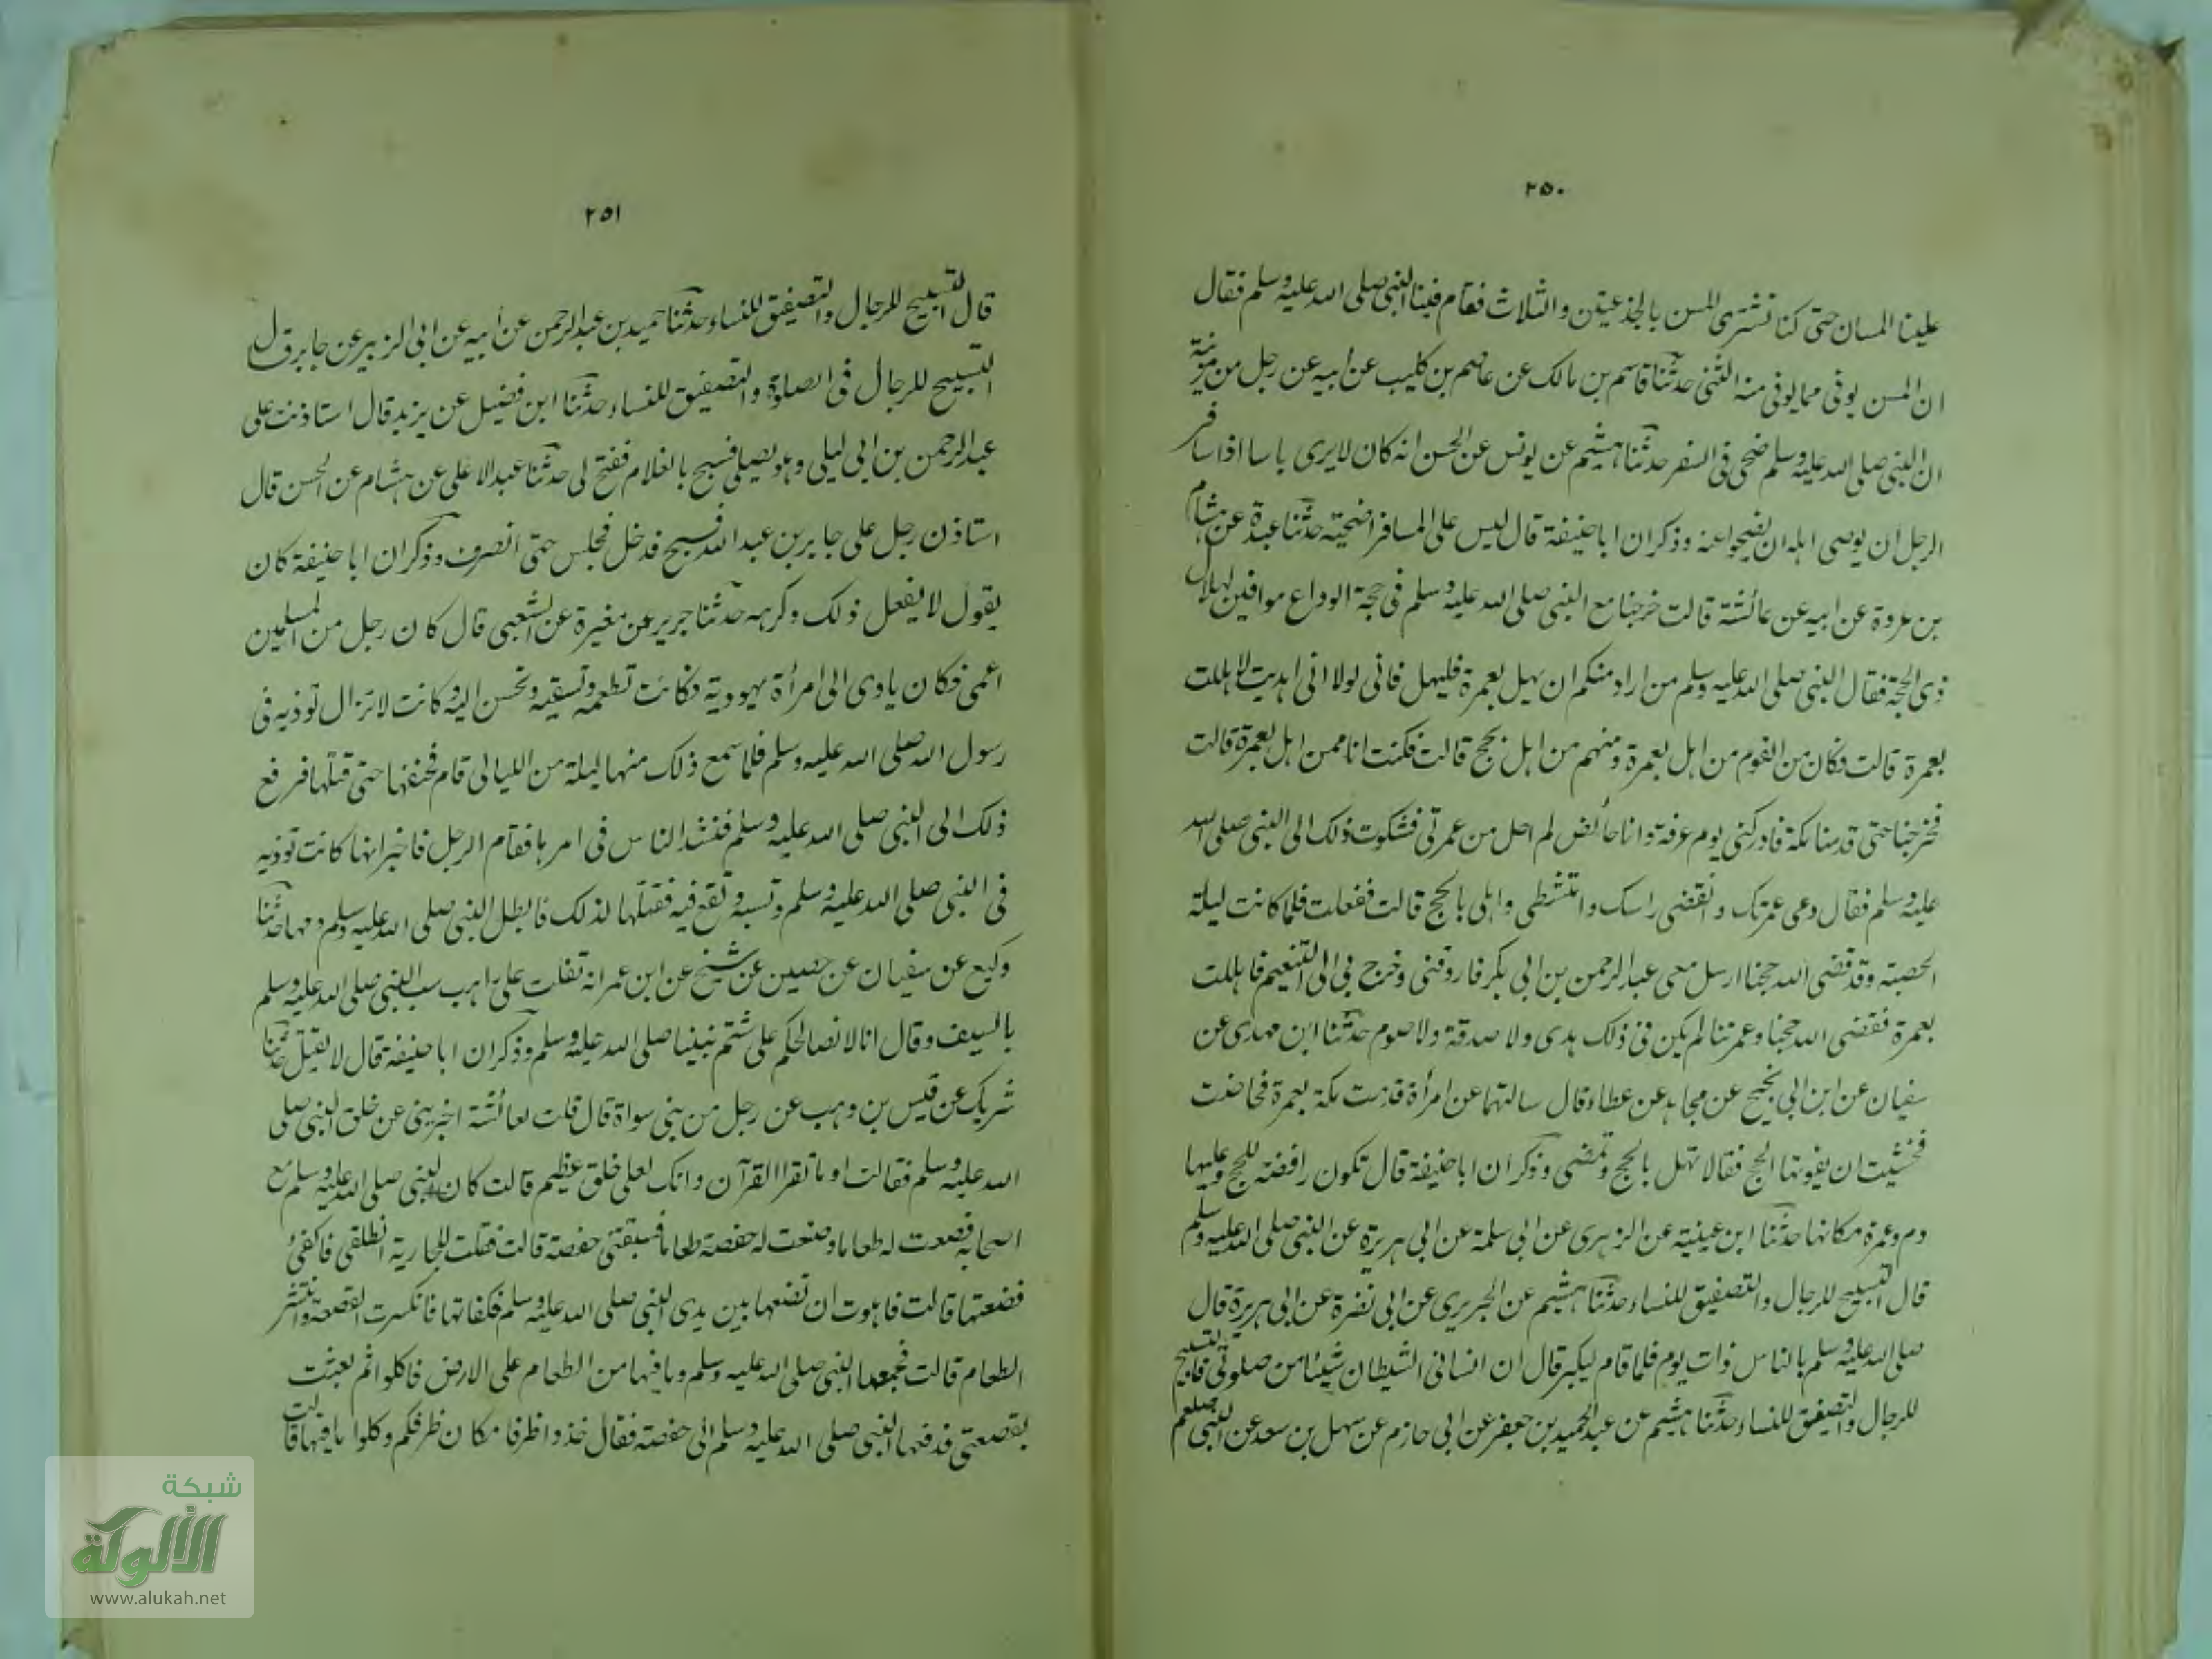 ٢٥٠
علينا المسان حتى كنا نشترى المسن بالجذعتين والثلاث فقام فينا النبى صلى الله عليه وسلم فقال
ان المسن يوفى مما يوفى منه الثنى حدثنا قاسم بن مالك عن عاصم بن كليب عن أبيه عن رجل من مزينة
ان النبى صلى الله عليه وسلم ضحى فى السفر حدثنا هشيم عن يونس عن الحسن انه كان لا يرى باسا اذا سافر
الرجل ان يوصى اهله ان يضحوا عنه وذكر ان ابا حنيفة قال ليس على المسافر اضحية حدثنا عبدة عن هشام
بن عروة عن ابيه عن عائشة قالت خرجنا مع النبى صلى الله عليه وسلم فى حجة الوداع موافين لهلال
ذى الحجة فقال النبى صلى الله عليه وسلم من اراد منكم ان يهل بعمرة فليهل فانى لولا انى اهديت لاهللت
بعمرة قالت فكان من القوم من اهل بعمرة ومنهم من اهل بحج قالت فكنت انا ممن اهل بعمرة قالت
فخرجنا حتى قدمنا مكة فادركنى يوم عرفة وانا حائض لم احل من عمرتى فشكوت ذلك الى النبى صلى الله
عليه وسلم فقال دعى عمرتك وانقضى راسك وامتشطى واهلى بالحج قالت ففعلت فلما كانت ليلة
الحصبة وقد قضى الله حجنا ارسل معى عبد الرحمن بن ابى بكر فاردفنى وخرج بى الى التنعيم فاهللت
بعمرة فقضى الله حجنا وعمرتنا لم يكن فى ذلك هدى ولا صدقة ولا صوم حدثنا ابن مهدى عن
سفيان عن ابن ابى نجيح عن مجاهد عن عطاء قال سالتهما عن امرأة قدمت مكة بعمرة فحاضت
فخشيت ان يفوتها الحج فقالا تهل بالحج وتمضى وذكر ان ابا حنيفة قال تكون رافضة للحج وعليها
دم وعمرة مكانها حدثنا ابن عيينة عن الزهرى عن ابى سلمة عن ابى هريرة عن النبى صلى الله عليه وسلم
قال التسبيح للرجال والتصفيق للنساء حدثنا هشيم عن الجريرى عن ابى نضرة عن ابى هريرة قال
صلى الله عليه وسلم بالناس ذات يوم فلما قام ليكبر قال ان انسانى الشيطان شيئا من صلوتى فالتسبيح
للرجال والتصفيق للنساء حدثنا هشيم عن عبد الحميد بن جعفر عن ابى حازم عن سهل بن سعد عن النبى صلعم
٢٥١
قال التسبيح للرجال والتصفيق للنساء حدثنا حميد بن عبد الرحمن عن أبيه عن ابى الزبير عن جابر قال
التسبيح للرجال فى الصلوة والتصفيق للنساء حدثنا ابن فضيل عن يزيد قال استاذنت على
عبد الرحمن بن ابى ليلى وهو يصلى فسبح بالغلام ففتح لى حدثنا عبد الاعلى عن هشام عن الحسن قال
استاذن رجل على جابر بن عبد الله فسبح فدخل فجلس حتى انصرف وذكر ان ابا حنيفة كان
يقول لا يفعل ذلك وكرهه حدثنا جرير عن مغيرة عن الشعبى قال كان رجل من المسلمين
اعمى فكان ياوى الى امرأة يهودية فكانت تطعمه وتسقيه وتحسن اليه وكانت لا تزال توذيه فى
رسول الله صلى الله عليه وسلم فلما سمع ذلك منها ليلة من الليالى قام فخنقها حتى قتلها فرفع
ذلك الى النبى صلى الله عليه وسلم فنشد الناس فى امرها فقام الرجل فاخبر انها كانت توذيه
فى النبى صلى الله عليه وسلم وتسبه وتقع فيه فقتلها لذلك فابطل النبى صلى الله عليه وسلم دمها حدثنا
وكيع عن سفيان عن حصين عن شيخ عن ابن عمر انه تفلت على راهب سب النبى صلى الله عليه وسلم
بالسيف وقال انا لا نصالحكم على شتم نبينا صلى الله عليه وسلم وذكر ان ابا حنيفة قال لا يقتل حدثنا
شريك عن قيس بن وهب عن رجل من بنى سواة قال قلت لعائشة اخبرينى عن خلق النبى صلى
الله عليه وسلم فقالت او ما تقرا القرآن وانك لعلى خلق عظيم قالت كان النبى صلى الله عليه وسلم مع
اصحابه فصنعت له طعاما وصنعت له حفصة طعاما فسبقتنى حفصة قالت فقلت للجارية انطلقى فاكفئ
قصعتها قالت فاهوت ان تضعها بين يدى النبى صلى الله عليه وسلم فكفاتها فانكسرت القصعة وانتشر
الطعام قالت فجمعها النبى صلى الله عليه وسلم وما فيها من الطعام على الارض فاكلوا ثم بعثت
بقصعتى فدفعها النبى صلى الله عليه وسلم الى حفصة فقال خذوا ظرفا مكان ظرفكم وكلوا ما فيها قالت
شبكة
الألوكة
www.alukah.net